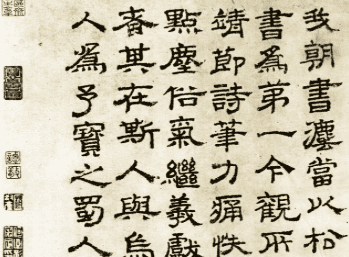 我朝書灋當以松
書爲第一今觀所
靖節詩筆力痛快
點塵俗氣繼羲獻
者其在斯人與烏
人爲予寶之蜀人